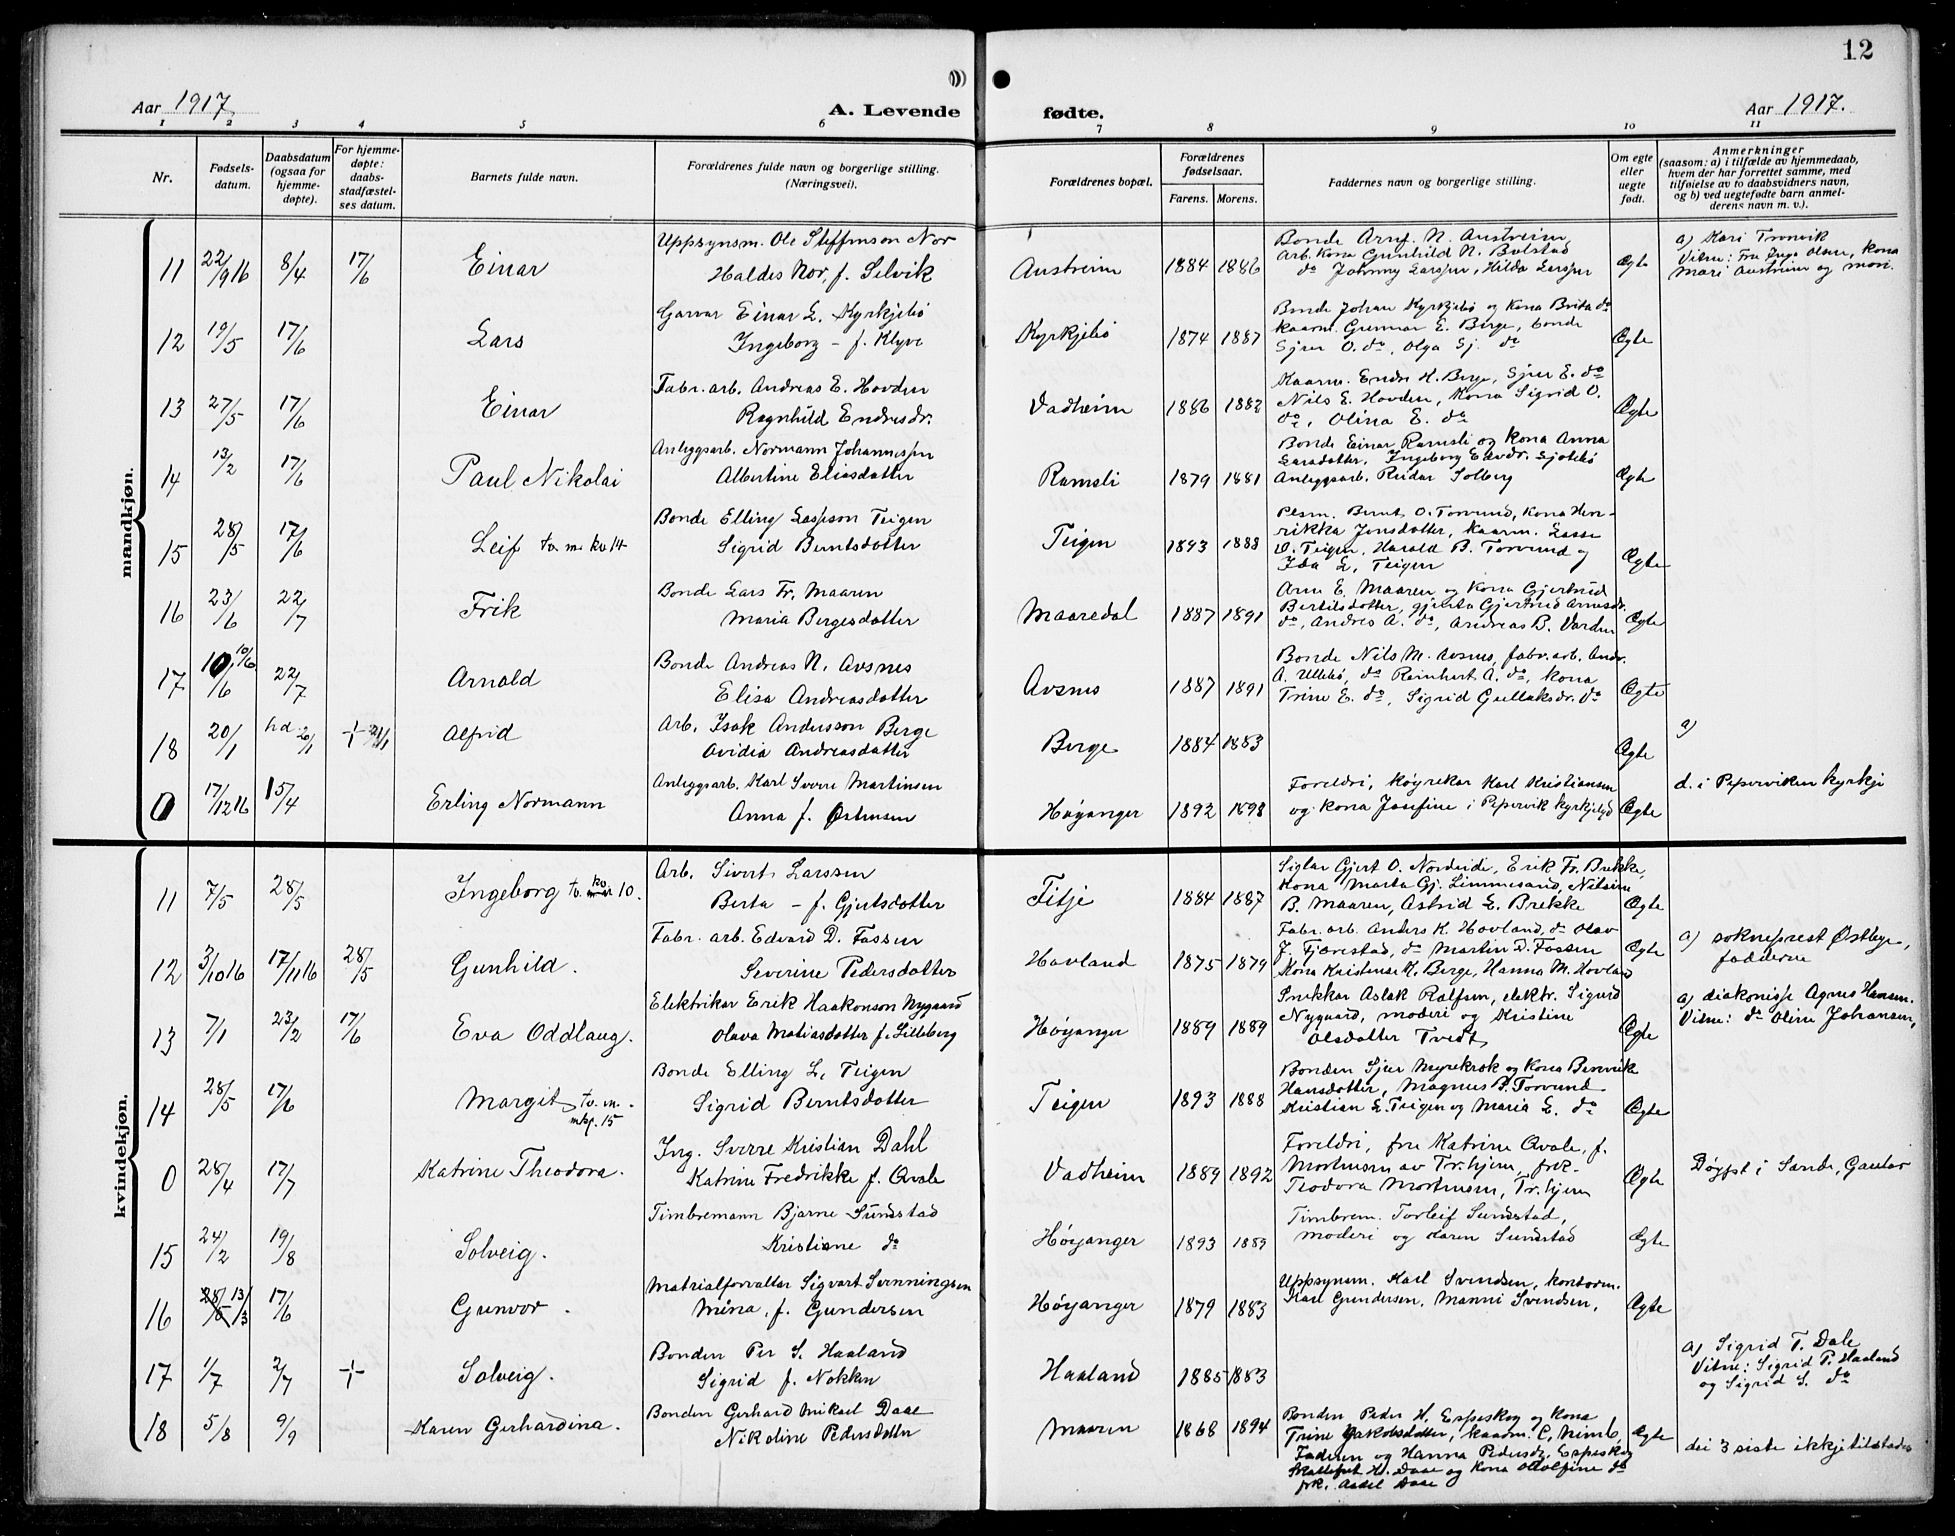 12
Aar 1917 A. Levende
fødte. Aar 1917.
1 2 3 4 5 6 7 8 9 10 11
Nr.
Fødsels-
datum.
Daabsdatum
(ogsaa for
hjemme-
døpte).
For hjemme-
døpte:
daabs-
stadfæstel-
ses datum.
Barnets fulde navn.
Forældrenes fulde navn og borgerlige stilling.
(Næringsvei).
Forældrenes bopæl.
Forældrenes
fødselsaar.
Farens. Morens.
Faddernes navn og borgerlige stilling.
Om egte
eller
uegte
født.
Anmerkninger
(saasom: a) i tilfælde av hjemmedaab,
hvem der har forrettet samme, med
tilføielse av to daabsvidners navn,
og b) ved uegtefødte barn anmel-
derens navn m. v.).
mandkjøn.
11 22/9 16 8/4 17/6 Einar
Uppsynsm. Ole Steffenson Nor
Haldis Nor, f. Selvik
Austreim 1884 1886
Bonde Arnf. N. Austreim
Arb. Kona Gunhild N. Bolstad
do Johnny Larsen, Hilda Larsen
Ægte
a) Kari Tronvik
Vitne: Fru Inga Olsen, kona
Mari Austreim og mori.
12 19/5 17/6 Lars
Garvar Einar L. Kyrkjebø
Ingeborg – f. Klyve
Kyrkjebø 1874 1887
Bonde Johan Kyrkjebø og Kona Brita do
kaarm. Gunnar E. Berge, bonde
Sjur O. do, Olga Sj. do
Ægte
13 27/5 17/6 Einar
Fabr. arb. Andreas E. Hovden
Ragnhild Endresdr.
Vadheim 1886 1882
Kaarm. Endre H. Berge, Sjur E. do
Nils E. Hovden, Kona Sigrid O.
do, Olina E. do
Ægte
14 13/2 17/6 Paul Nikolai
Anleggsarb. Normann Johannesen
Albertine Eliasdotter
Ramsli 1879 1881
Bonde Einar Ramsli og Kona Anna
Larsdotter, Ingeborg Edvdr. Sjøtebø
Anleggsarb. Reidar Solberg
Ægte
15 28/5 17/6 Leif tv. m. kv 14
Bonde Elling Lasseson Teigen
Sigrid Berntsdotter
Teigen 1893 1888
Plsm. Bernt O. Torvund, Kona Hen-
rikka Jensdotter, Kaarm. Lasse
O. Teigen, Harald B. Torvund og
Ida L. Teigen
Ægte
16 23/6 22/7 Frik
Bonde Lars Fr. Maaren
Maria Bergesdotter
Maaredal 1887 1891
Arne E. Maaren og Kona Gjertrud
Bertilsdotter, gjenta Gjertrud Arnesdr.
do, Andres A. do, Andreas B. Varden
Ægte
17 10/6 10/6 22/7 Arnold
Bonde Andreas N. Avsnes
Elisa Andreasdotter
Avsnes 1887 1891
Bonde Nils M. Avsnes, fabr. arb. Andr.
A. Ullebø, do Reinhart A. do, Kona
Trine E. do, Sigrid Gullaksdr. do
Ægte
18 20/1 hd 20/1 + 21/1 Alfrid
Arb. Isak Andersson Berge
Ovidia Andreasdotter
Berge 1884 1883 Ægte a)
0 17/12 16 15/4 Erling Normann
Anleggsarb. Karl Sverre Martinsen
Anna f. Østensen
Høyanger 1892 1898
Foreldri, køyrekar Karl Kristiansen
og kona Josefine i Pipervik kyrkjelyd
Ægte
d. i Piperviken kyrkje
kvindekjøn.
11 7/5 28/5 Ingeborg tv. kv 10.
Arb. Sivert Larssen
Berta – f. Gjertsdotter
Fitje 1884 1887
Siglar Gjert O. Nordeide, Erik Fr. Brekke,
Kona Marta Gj. Limmesand, Nilsine
B. Maaren, Astrid L. Brekke
Ægte
12 3/10 16 17/11 16 28/5 Gunhild.
Fabr. arb. Edvard D. Fossen
Severine Pedersdotter
Hovland 1875 1879
Fabr. arb. Anders K. Hovland, do Olav
J. Fjærestad, do Martin D. Fossen
Kona Kristense K. Berge, Hanna M. Hovland
Ægte
a) sokneprest Østbye,
fadderne
13 7/1 23/2 17/6 Eva Oddlaug.
Elektrikar Erik Haakonson Nygaard
Olava Matiasdotter f. Lilleberg
Høyanger 1889 1889
Snekkar Aslak Rolfsen, elektr. Sigurd
Nygaard, moderi og Kristine
Olsdotter Tvedt
Ægte
a) diakonisse Agnes Hansen.
Vitne: do Oline Johansen,
14 28/5 17/6 Margit tv. m.
mkj. 15
Bonde Elling L. Teigen
Sigrid Berntsdotter
Teigen 1893 1888
Bonden Sjur Myrekrok og Kona Benvik
Hansdotter, Magnus B. Torvund
Kristian L. Teigen og Maria L. do
Ægte
0 28/4 17/7 Katrine Theodora.
Ing. Sverre Kristian Dahl
Katrine Fredrikke f. Qvale
Vadheim 1889 1892
Foreldri, fru Katrine Qvale, f.
Mortensen av Tr.hjem, frk.
Teodora Mortensen, Tr.hjem
Ægte
Døypt i Sande, Gaular
15 24/2 19/8 Solveig.
Timbremann Bjarne Sundstad
Kristiane do
Høyanger 1893 1889
Timbrem. Torleif Sundstad,
moderi og Karen Sundstad
Ægte
16 13/3 17/6 Gunvor.
Matrialforvaltar Sigvart Svenningsen
Mina, f. Gundersen
Høyanger 1879 1883
Uppsynsm. Karl Svendsen, kontorm.
Karl Gundersen, Manni Svendsen,
Ægte
17 1/7 2/7 + Solveig.
Bonden Per S. Haaland
Sigrid f. Nokken
Haaland 1885 1883
a) Sigrid T. Dale
Vitne: Sigrid P. Haaland
og Sigrid S. do
18 5/8 9/9 Karen Gerhardina.
Bonden Gerhard Mikael Daae
Nikoline Pedersdotter
Maaren 1868 1894
Bonden Peder H. Espeskog og Kona
Trine Jakobsdotter, kaarm. C. Nimb,
Faderen og Hanna Pedersdr. Espeskog
Skattefut H. Daae og Kona Adolfine do
frk. Aadel Daae
Ægte
dei 3 siste ikkje tilstades